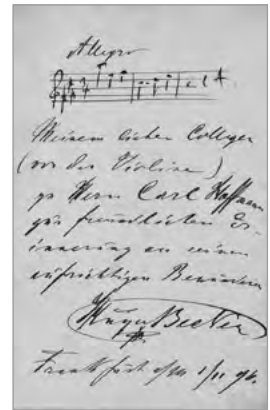 Allegro
Meinem lieben Collegen
(von der Violine)
Herrn Carl Hoffmann
zur freundlichen Er-
innerung an seinen
aufrichtigen Bewunderer
Hugo Becker
Frankfurt a/M 1/11 96.